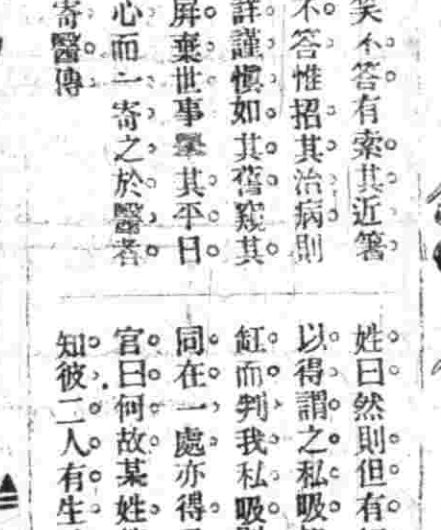 笑不答有索其近箸
不答惟招其治病則
詳謹愼如其舊窺其
屏棄世事舉其平日
心而一寄之於醫者
寄醫傳
姓曰然則但有
以得謂之私吸
缸而判我私吸
同在一處亦得
官曰何故某姓
知彼二人有生